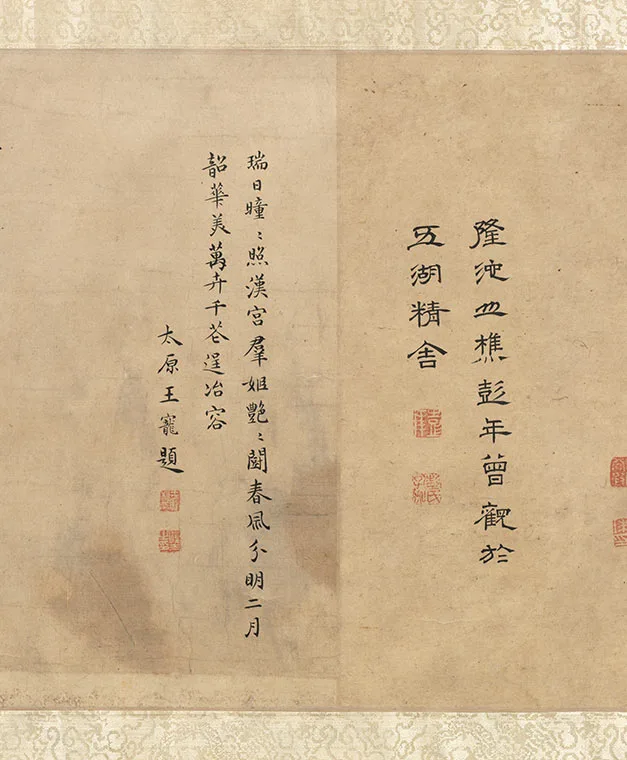 隆池山樵彭年曾觀於
五湖精舍
瑞日曈〻照漢宮羣姬艷〻鬭春風分明二月
韶華美萬卉千花逞冶容
太原王寵題